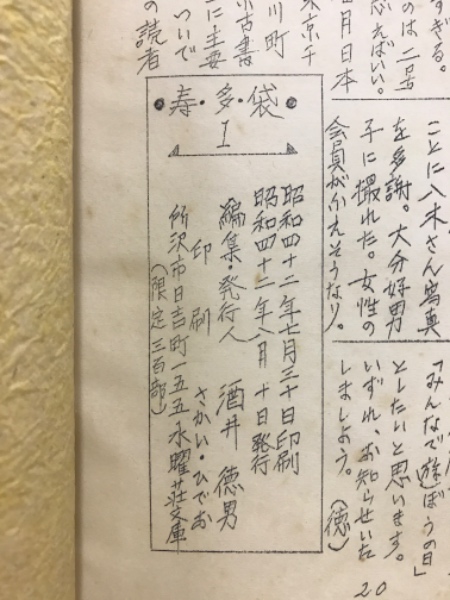 すぎる。
のは二号
えばいい。
月日本
京千
川町
古書
に主要
ついで
の読者
ことに八木さん寫真
を多謝。大分好男
子に撮れた。女性の
会員がふえそうなり。
「みんなで遊ぼうの日」
としたいと思います。
いずれ、お知らせいた
しましよう。(徳)
寿・多・袋
I
昭和四十二年七月三十日印刷
昭和四十二年八月 十日発行
編集・発行人 酒井徳男
印刷 さかい・ひでお
所沢市日吉町一五五水曜荘文庫
(限定三百部)
20